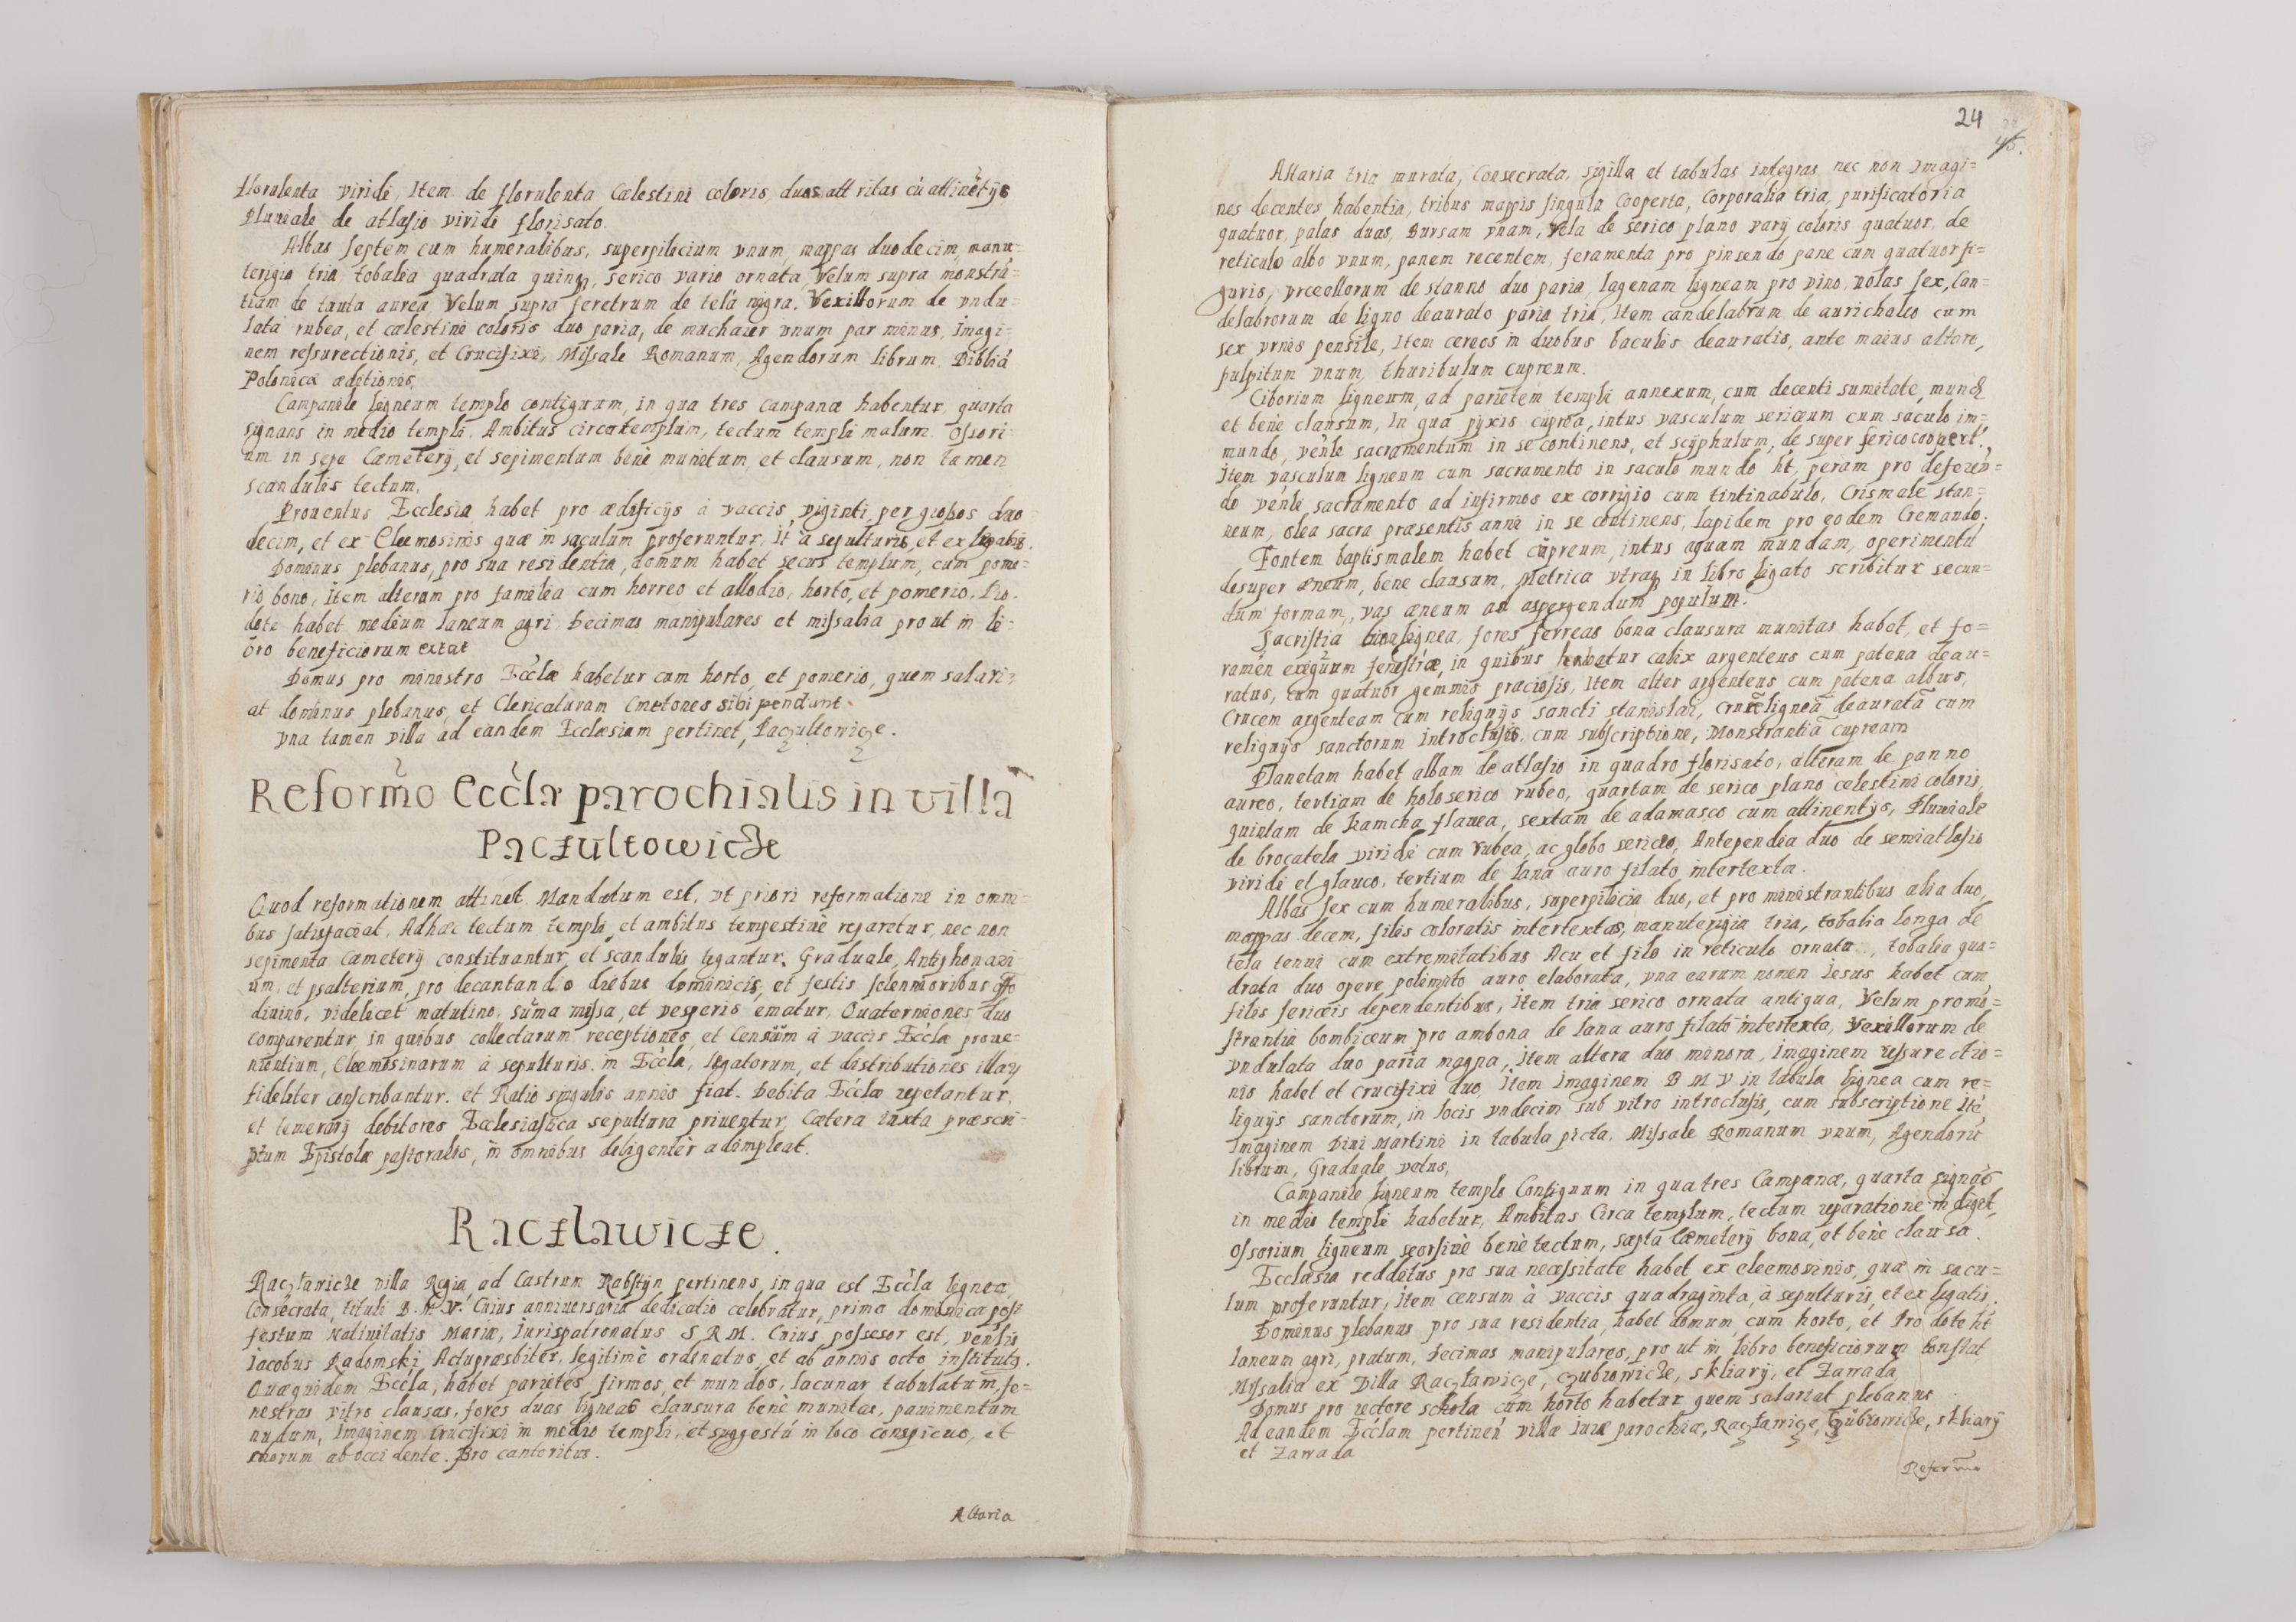 florulenta viridi, Item de florulenta Cælestini coloris duas attritas cũ attinẽtijs
Pluuiale de atlasio viridi florisato.
Albas septem cum humeralibus, superpilicium vnum, mappas duodecim, manu=
tergia tria, tobalia quadrata quinq, serico vario ornata, Velum supra monstra=
tiam de tauta aurea, Velum supra feretrum de tela nigra. Vexillorum de vndu=
lata rubea, et cælestini coloris duo paria, de muchaier vnum par minus, Imagi=
nem ressurectionis, et Crucifixi, Missale Romanum, Agendorum librum Bibliã
Polonicæ æditionis.
Campanile ligneum templo contiguum, in qua tres campanæ habentur, quarta
signans in medio templi. Ambitus circa templum, tectum templi malum. Ossori=
um in sepe Cæmeterij, et sepimentum benè munitum, et clausum, non tamen
scandulis tectum.
Prouentus Ecclesia habet pro ædificijs à vaccis viginti per grossos duo=
decim, et ex Eleemosinis quæ in saculum proferuntur, It à sepulturis, et ex legatis.
Dominus plebanus, pro sua residentia, domum habet secus templum, cum pome=
rio bono, Item alteram pro familia cum horreo et allodio, horto, et pomerio. Pro
dote habet medium laneum agri Decimas manipulares et missalia prout in li=
bro beneficiorum extat
Domus pro ministro Eccłæ habetur cum horto, et pomerio, quem salari=
at dominus plebanus, et Clericaturam Cmetones sibi pendunt.
Vna tamen villa ad eandem Ecclæsiam pertinet, Paczultowicze.
Reformo Eccła parochialis in villa
Paczultowicze
Quod reformationem attinet. Mandatum est, vt priori reformationi in omni=
bus satisfaciat, Adhæc tectum templi, et ambitus tempestiuè reparetur, nec non
sepimenta Cæmeterij constituantur, et scandulis tegantur. Graduale, Antiphonari
um, et psalterium, pro decantando diebus dominicis, et festis solennioribus offo
diuino, videlicet matutino, sũma missa, et vesperis ematur. Quaterniones duo
comparentur in quibus collectarum receptiones, et Censuũm à vaccis Eccłæ proue=
nientium, Eleemosinarum à sepulturis in Eccła, legatorum, et distributiones illarũ
fideliter conscribantur. et Ratio singulis annis fiat. Debita Eccłæ repetantur,
et temerarij debitores Ecclesiastica sepultura priuentur, Cætera iuxta præscri=
ptum Epistolæ pastoralis, in omnibus diligenter adimpleat.
Raczlawicze.
Raczławicze villa Regia, ad Castrum Rabstyn pertinens, in qua est Eccła lignea
Consecrata, tituli B. M. V. Cuius anniuersaria dedicatio celebratur, prima dominica post
festum Natiuitatis Mariæ, Iurispatronatus S R M. Cuius possesor est, venłis
Iacobus Radomski Actupræsbiter, legitimè ordinatus, et ab annis octo institutq.
Quæquidem Eccła, habet parietes firmos, et mundos, lacunar tabulatum, fe=
nestras vitro clausas, fores duas ligneas clausura benè munitas, pauimentum
nudum, Imaginem Crucifixi in medio templi, et suggestũ in loco conspicuo, et
chorum ab occidente. Pro cantoribus.
Altaria
24
45.
Altaria tria murata, Consecrata, sigilla et tabulas integras nec non Imagi=
nes decentes habentia, tribus mappis singula Cooperta, Corporalia tria, purificatoria
quatuor, palas duas, Bursam vnam, Vela de serico plano varij coloris quatuor, de
reticulo albo vnum, panem recentem, feramenta pro pinsendo pane cum quatuor fi=
guris, vrceollorum de stanno duo paria, lagenam ligneam pro vino, nolas sex, Can=
delabrorum de ligno deaurato paria tria, Item candelabrum de aurichalco cum
sex vrnis pensile, Item cereos in duobus baculis deauratis, ante maius altare,
pulpitum vnum, thuribulum cupreum.
Ciborium ligneum, ad parietem templi annexum, cum decenti sumitate, mundè
et benè clausum, In qua pyxis cuprea, intus vasculum sericeum cum saculo im=
mundo, venłe sacramentum in se continens, et scyphulum, de super serico coopert.
Item vasculum ligneum cum sacramento in saculo mundo ht, peram pro deferen=
do venłi sacramento ad infirmos ex corrigio cum tintinabulo, Crismale stan=
neum, olea sacra præsentis anni in se continens, lapidem pro eodem Cremando.
Fontem baptismalem habet cupreum, intus aquam mundam, operimentũ
desuper æneum, bene clausum, Metrica vtraq in libro ligato scribitur secun=
dum formam, vas æneum ad aspergendum populum.
Sacristia lignea, fores ferreas bona clausura munitas habet, et fo=
ramen exiguum fenestræ, in quibus habetur calix argenteus cum patena deau=
ratus, cum quatuor gemmis præciosis, Item alter argenteus cum patena albus,
Crucem argenteam cum reliquijs sancti stanislai, Crucẽ ligneã deauratã cum
reliquijs sanctorum introclusis, cum subscriptione, Monstrantiã cupream
Planetam habet albam de atlasio in quadro florisato, alteram de panno
aureo, tertiam de holoserico rubeo, quartam de serico plano celestini coloris,
quintam de Kamcha flauea, sextam de adamasco cum attinentijs, Pluuiale
de brocatela viridi cum rubea, ac globo sericeo, Antependia duo de semiatlasio
viridi et glauco, tertium de lana auro filato intertexta.
Albas sex cum humeralibus, superpilicia duo, et pro ministrantibus alia duo,
mappas decem, filis coloratis intertextas, manutergia tria, tobalia longa de
tela tenui cum extremitatibus Acu et filo in reticulo ornata, tobalia qua=
drata duo opere polimito auro elaborata, vna earum nomen Iesus habet cum
filis sericeis dependentibus, Item tria serico ornata antiqua, Velum pro mo=
strantia bombiceum pro ambona de lana auro filato intertexta, Vexillorum de
vndulata duo paria magna, Item altera duo minora, Imaginem ressurectio=
nis habet et Crucifixi duo, Item Imaginem B M V in tabula lignea cum re=
liquijs sanctorum, in locis vndecim sub vitro introclusis, cum subscriptione Itẽ
Imaginem Diui Martini in tabula picta, Missale Romanum vnum, Agendorũ
librum, Graduale vetus,
Campanile ligneum templo Contiguum in qua tres Campanæ, quarta signas
in medio templi habetur, Ambitus Circa templum, tectum reparatione indiget,
Ossorium ligneum seorsiuè benè tectum, sæpta Cæmeterij bona, et benè clausa.
Ecclæsia redditus pro sua necessitate habet ex eleemosinis, quæ in sacu=
lum proferuntur, Item censum à vaccis quadraginta, à sepulturis, et ex legatis.
Dominus plebanus pro sua residentia, habet domum, cum horto, et Pro dote ht
laneum agri, pratum, decimas manipulares, pro ut in libro beneficiorum Constat
Missalia ex Villa Raczławicze, Czubrowicze, Skłiary, et Zawada
Domus pro rectore schola cum horto habetur quem salariat plebanus
Ad eandem Eccłam pertinent villæ Iuræ parochiæ, Raczławicze, Czubrowicze, skliarij
et Zawada
Reformo